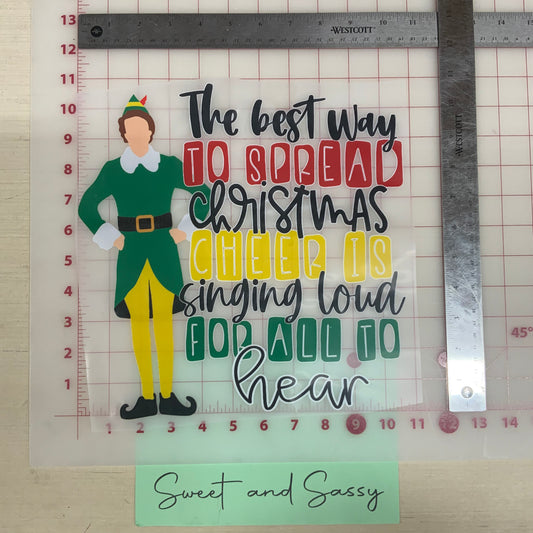 WESTCOTT
WESTCOTT
The best way
TO SPREAD
christmas
CHEER IS
singing loud
FOR ALL TO
hear
13
12
11
10
9
8
7
6
5
4
3
2
1
45°
1 2 3 4 5 6 7 8 9 10 11 12 13 14
Sweet and Sassy